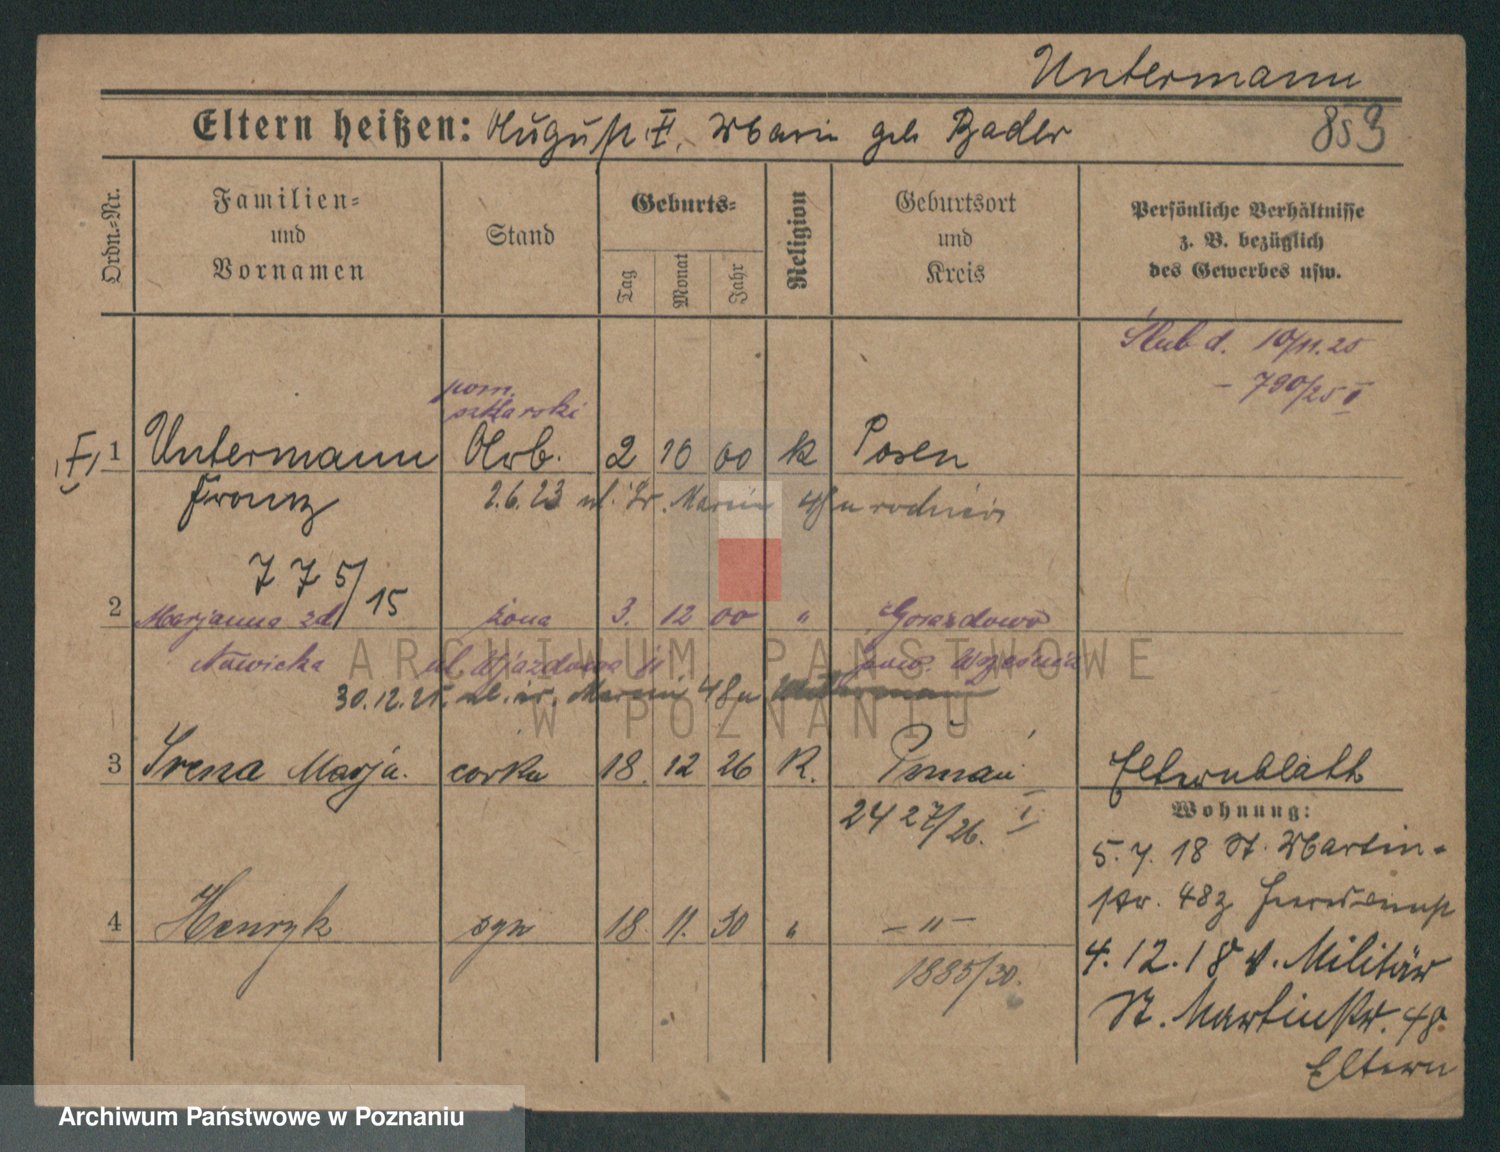 Untermann
Eltern heißen: August I, Marie geb Badler
853
Ordn.=Nr.
Familien=
und
Vornamen
Stand
Geburts=
Tag
Monat
Jahr
Religion
Geburtsort
und
Kreis
Persönliche Verhältnisse
z. B. bezüglich
des Gewerbes usw.
Ślub d. 10/11.25
— 790/25 I
pom.
szklarski
I 1 Untermann Arb. 2 10 00 K Posen
Franz 2.6.23 ul. Św. Marcin 48 u rodziców
775/15
2 Marjanna zd żona 3. 12 00 " Gorazdowo
Nawicka ul. Wjazdowa 11 pow. Września
30.12.25. ul. św. Marcin 48 u
3 Irena Marja. córka 18. 12 26 K. Poznań
2427/26. I
Elternblatt
Wohnung:
5.7.18 St. Martin=
str. 48
4.12.18 v. Militär
St. Martinstr. 48.
Eltern
4 Henryk syn 18 11. 30 " — " —
1885/30.
ARCHIWUM PAŃSTWOWE
W POZNANIU
Archiwum Państwowe w Poznaniu